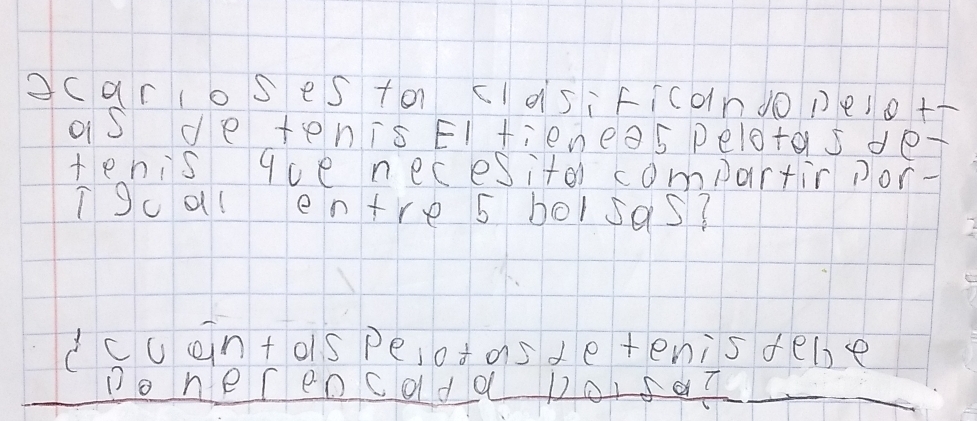 2carlos esta clasificando pelot-
as de tenis El tiene 25 pelotas de-
tenis que necesita compartir por-
igual entre 5 bolsas?
¿cuántas pelotas de tenis debe
poner en cada bolsa?